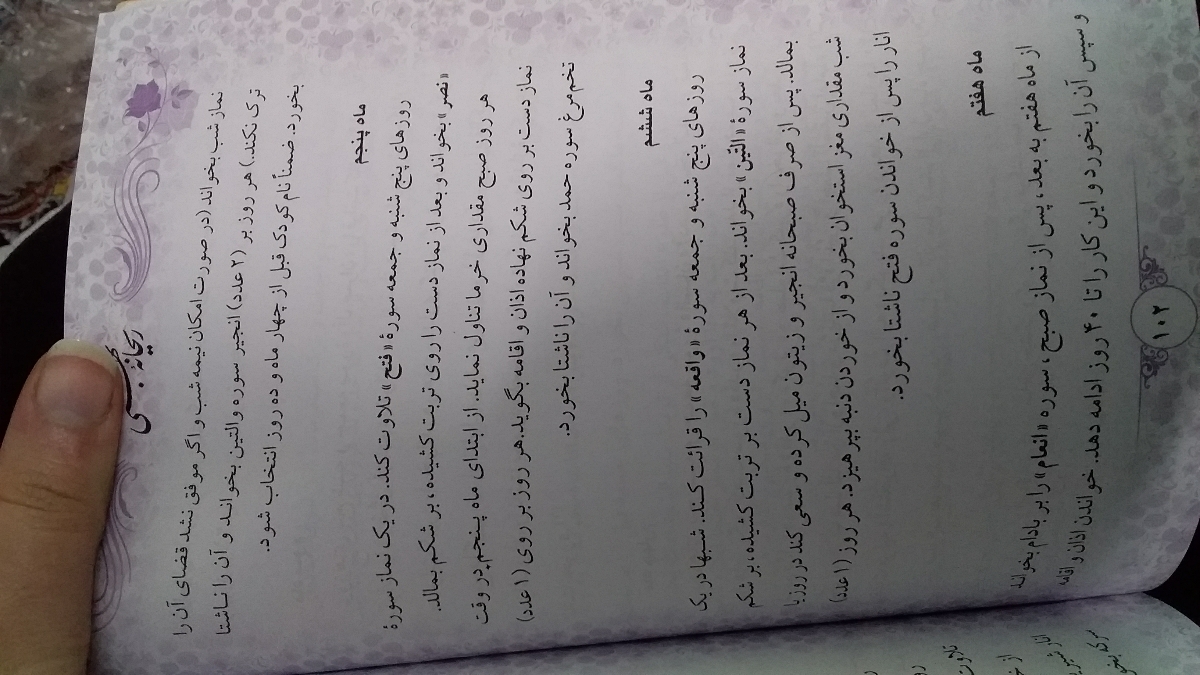 ریحانه
نماز شب بخواند (در صورت امکان نیمه شب و اگر موفق نشد قضای آن را
ترک نکند.) هر روز بر (۲ عدد) انجیر سوره والتین بخواند و آن را ناشتا
بخورد. ضمناً نام کودک قبل از چهار ماه و ده روز انتخاب شود.
ماه پنجم
روزهای پنج شنبه و جمعه سورۀ «فتح» تلاوت کند. در یک نماز سورۀ
«نصر» بخواند و بعد از نماز دست را روی تربت کشیده، بر شکم بمالد.
هر روز صبح مقداری خرما تناول نماید. از ابتدای ماه پنجم در وقت
نماز دست بر روی شکم نهاده اذان و اقامه بگوید. هر روز بر روی (۱ عدد)
تخم مرغ سوره حمد بخواند و آن را ناشتا بخورد.
ماه ششم
روزهای پنج شنبه و جمعه سورۀ «واقعه» را قرائت کند. شبها در یک
نماز سورۀ «التین» بخواند. بعد از هر نماز دست بر تربت کشیده، بر شکم
بمالد. پس از صرف صبحانه انجیر و زیتون میل کرده و سعی کند در روز یا
شب مقداری مغز استخوان بخورد و از خوردن دنبه بپرهیزد. هر روز (۱ عدد)
انار را پس از خواندن سوره فتح ناشتا بخورد.
ماه هفتم
از ماه هفتم به بعد، پس از نماز صبح، سوره «انعام» را بر بادام بخواند
و سپس آن را بخورد و این کار را تا ۴۰ روز ادامه دهد. خواندن اذان و اقامه
۱۰۲
تلاوت
از خ
انار شیرین